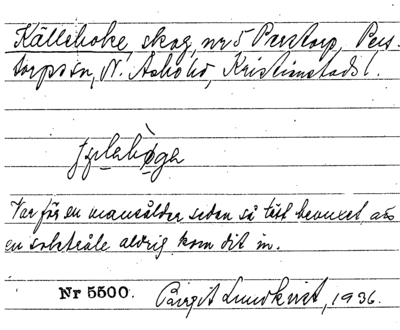 Källehoke, skog, nr 5 Perstorp, Pers-
torps sn, N. Åsbo hd, Kristianstads l.
Var för en mansålder sedan så tätt bevuxet, att
en solstråle aldrig kom dit in.
Nr 5500. Birgit Lundkvist, 1936.